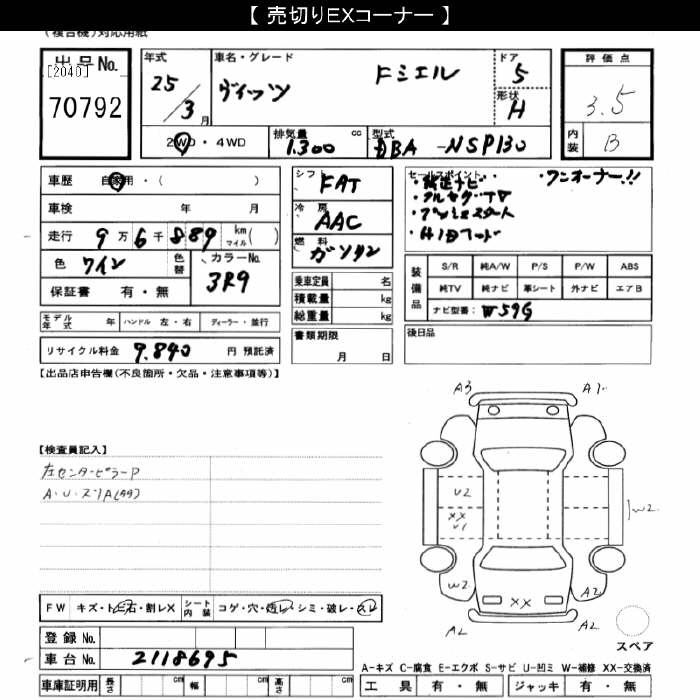 【 売切りEXコーナー 】
(複合機)対応用紙
出品No.
[2040]
70792
年式
25/3月
車名・グレード
ヴィッツ
Fシエル
ドア
5
形状
H
評価点
3.5
内装
B
2WD・4WD
排気量
1.300
cc
型式
DBA-NSP130
車歴
自家用・( )
車検 年 月
走行
9万6千889
km
マイル( )
色
ワイン
色替
カラーNo.
3R9
保証書 有・無
シフト
FAT
冷房
AAC
燃料
ガソリン
乗車定員 名
積載量 kg
総重量 kg
セールスポイント
・純正ナビ
・ワンオーナー!!
・フルセグTV
・プッシュスタート
・HID
装備品
S/R 純A/W P/S P/W ABS
純TV 純ナビ 革シート 外ナビ エアB
ナビ型番: W59G
モデル年式 年 ハンドル 左・右 ディーラー・並行
リサイクル料金 9.840 円 預託済
書類期限
月 日
後日品
【出品店申告欄(不良箇所・欠品・注意事項等)】
【検査員記入】
左センターピラーP
A・U・スリA(タタ)
A3
A1
U2
XX
U1
W2
W2
A2
XX
A2
A2
スペア
FW キズ・ト・石・割レX
シート内装 コゲ・穴・汚レ・シミ・破レ・スレ
登録 No.
車台 No.
2118695
車庫証明用 長さ cm 幅 cm 高さ cm
A-キズ C-腐食 E-エクボ S-サビ U-凹ミ W-補修 XX-交換済
工具 有・無 ジャッキ 有・無